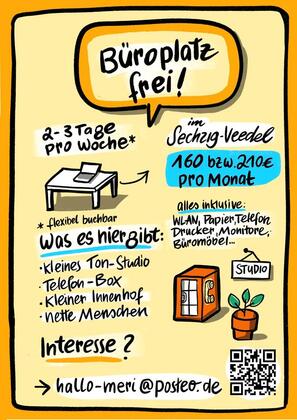 Büroplatz
frei!
2-3 Tage
pro Woche*
im
Sechzig-Veedel
160 bzw. 210€
pro Monat
* flexibel buchbar
alles inklusive:
WLAN, Papier, Telefon
Drucker, Monitore,
Büromöbel...
Was es hier gibt:
· Kleines Ton-Studio
· Telefon-Box
· Kleiner Innenhof
· nette Menschen
STUDIO
Interesse?
→ hallo-meri@posteo.de